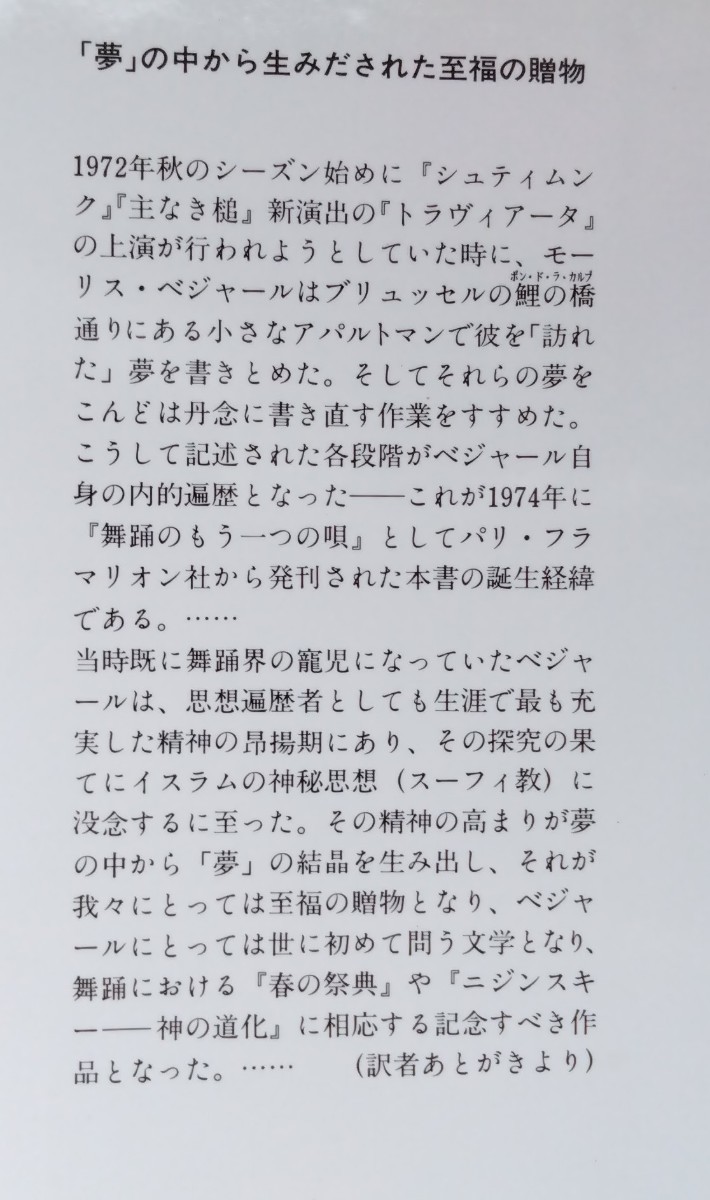 「夢」の中から生みだされた至福の贈物
1972年秋のシーズン始めに『シュティムン
ク』『主なき槌』新演出の『トラヴィアータ』
の上演が行われようとしていた時に、モー
ポン・ド・ラ・カルプ
リス・ベジャールはブリュッセルの鯉の橋
通りにある小さなアパルトマンで彼を「訪れ
た」夢を書きとめた。そしてそれらの夢を
こんどは丹念に書き直す作業をすすめた。
こうして記述された各段階がベジャール自
身の内的遍歴となった——これが1974年に
『舞踊のもう一つの唄』としてパリ・フラ
マリオン社から発刊された本書の誕生経緯
である。……
当時既に舞踊界の寵児になっていたベジャ
ールは、思想遍歴者としても生涯で最も充
実した精神の昂揚期にあり、その探究の果
てにイスラムの神秘思想（スーフィ教）に
没念するに至った。その精神の高まりが夢
の中から「夢」の結晶を生み出し、それが
我々にとっては至福の贈物となり、ベジャ
ールにとっては世に初めて問う文学となり、
舞踊における『春の祭典』や『ニジンスキ
ー——神の道化』に相応する記念すべき作
品となった。……　　（訳者あとがきより）